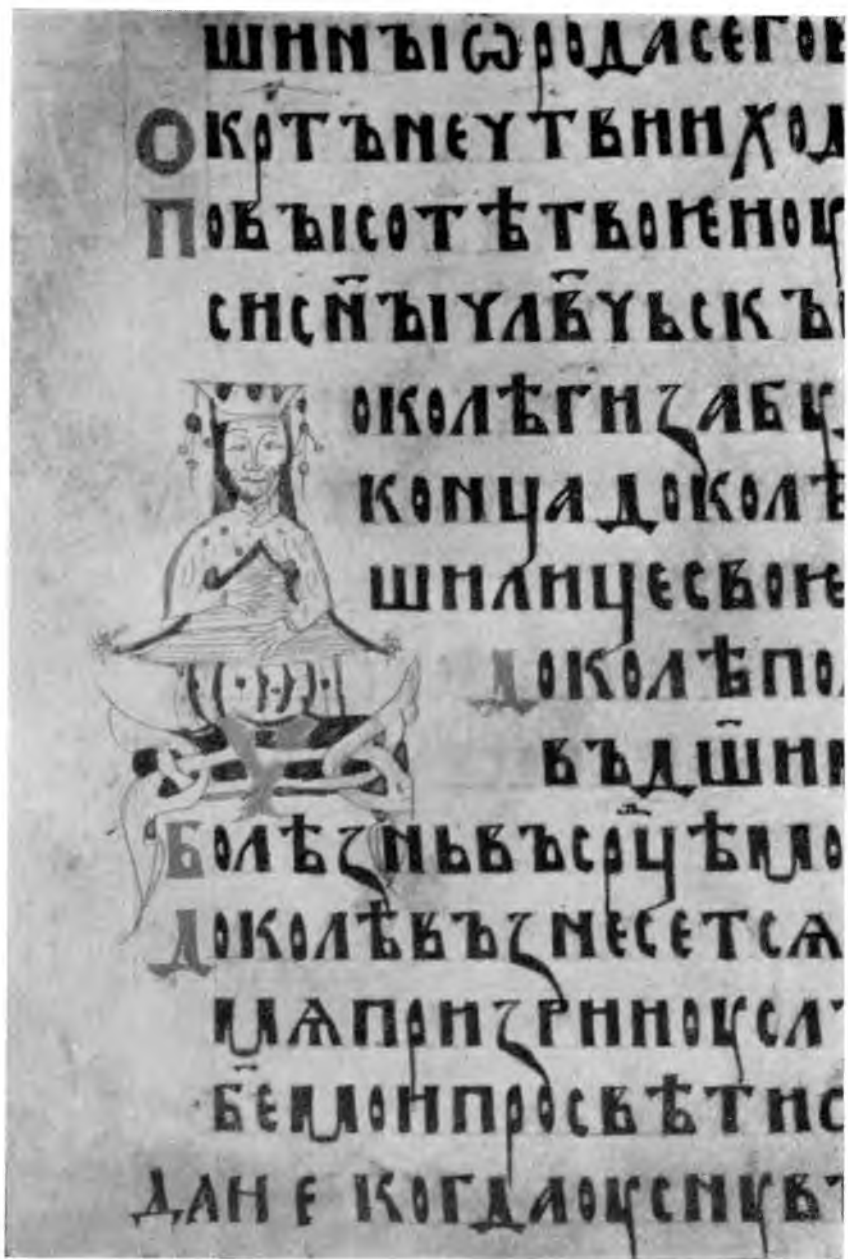 шинꙑѿродасегов
Окр҇тънеч҇твииход
Повꙑсотѣтвоѥиоу
сисн҃ꙑчлв҃чьскꙑ
околѣг҃иꙁабу
концадоколѣ
шилицесвоѥ
Доколѣпо
въдш҃и
Болѣꙁньвъср҃цѣмо
Доколѣвъꙁнесетсѧ
мѧприꙁриноусл
бе҃моипросвѣтис
дане когдаоуснув